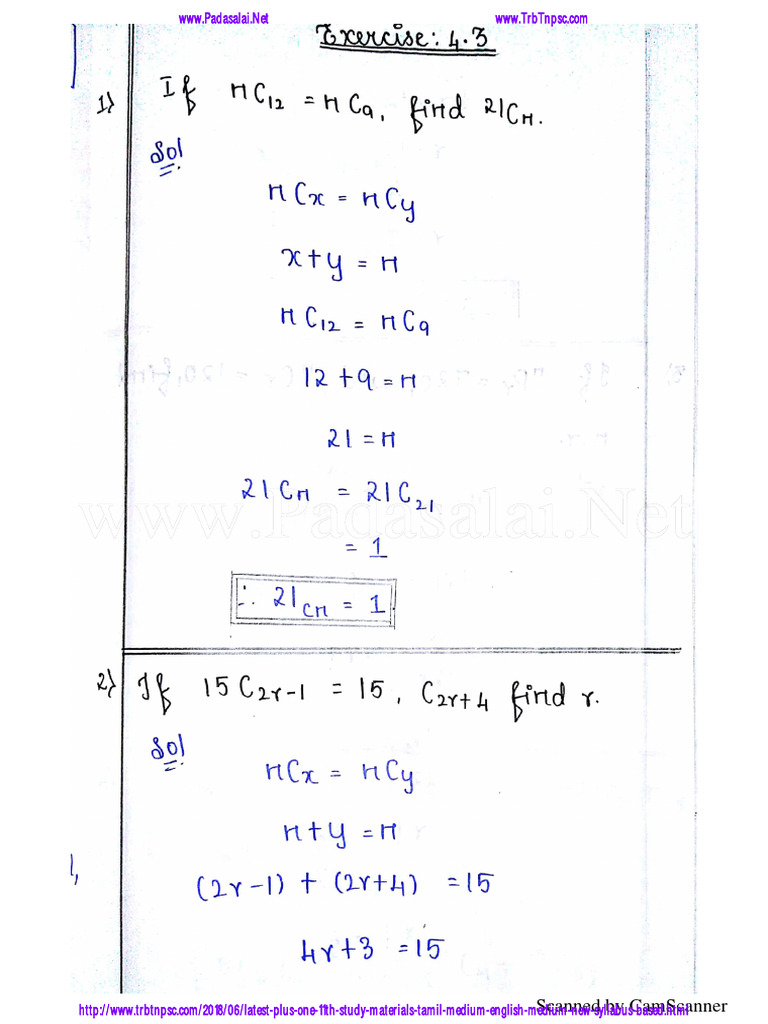 www.Padasalai.Net www.TrbTnpsc.com
Exercise: 4.3
1) If nC₁₂ = nC₉, find 21Cₙ.
Sol
nCx = nCy
x+y = n
nC₁₂ = nC₉
12+9 = n
21 = n
21Cₙ = 21C₂₁
www.Padasalai.Net
= 1
∴ 21Cₙ = 1
2) If 15C₂ᵣ₋₁ = 15, C₂ᵣ₊₄ find r.
Sol
nCx = nCy
n+y = n
(2r-1) + (2r+4) = 15
4r+3 = 15
Scanned by CamScanner
http://www.trbtnpsc.com/2018/06/latest-plus-one-11th-study-materials-tamil-medium-english-medium-new-syllabus-based.html